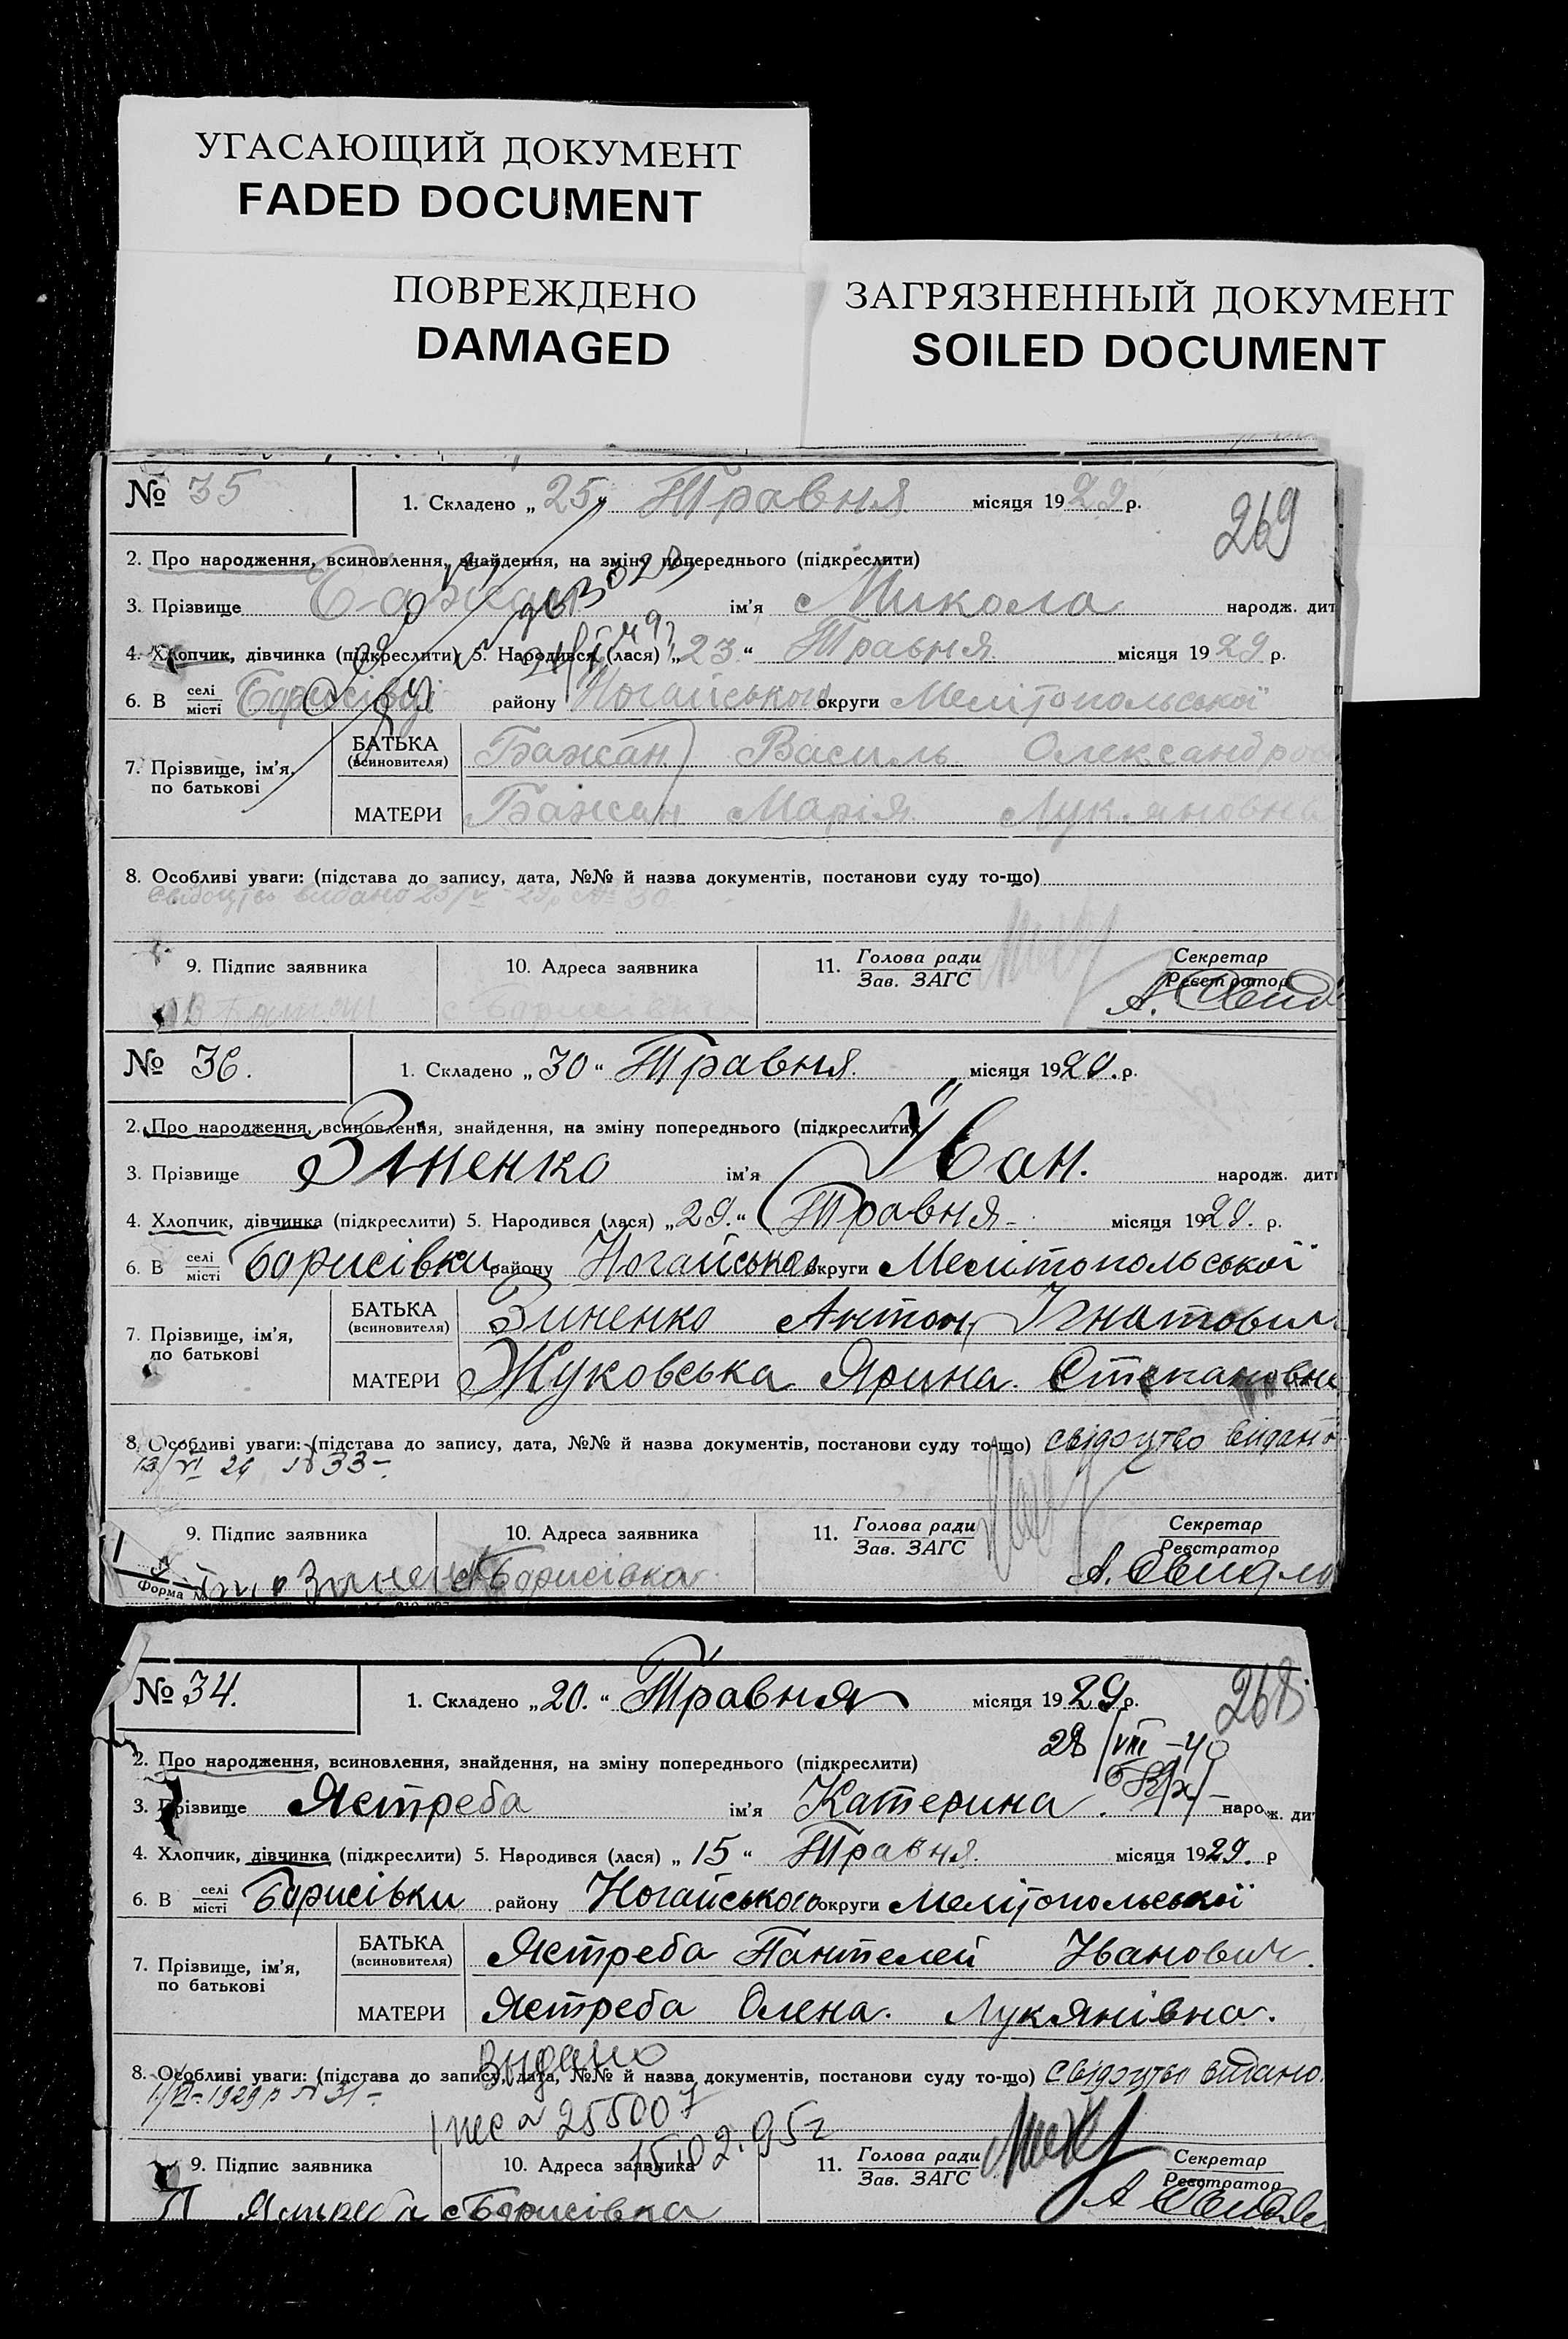 УГАСАЮЩИЙ ДОКУМЕНТ
FADED DOCUMENT
ПОВРЕЖДЕНО
DAMAGED
ЗАГРЯЗНЕННЫЙ ДОКУМЕНТ
SOILED DOCUMENT
№ 35
1. Складено „25“ Травня місяця 1929 р.
269
2. Про народження, всиновлення, знайдення, на зміну попереднього (підкреслити)
3. Прізвище Бажан ім'я Микола народж. дит
4. Хлопчик, дівчинка (підкреслити) 5. Народився (лася) „23“ Травня місяця 1929 р.
6. В селі/місті Борисівці району Ногайського округи Мелітопольської
7. Прізвище, ім'я, по батькові
БАТЬКА (всиновителя) Бажан Василь Олександров
МАТЕРИ Бажан Марія Лукяновна
8. Особливі уваги: (підстава до запису, дата, №№ й назва документів, постанови суду то-що)
свідоцтво видано 25/V-29р № 30
9. Підпис заявника
10. Адреса заявника
11. Голова ради/Зав. ЗАГС
Секретар/Реєстратор
В Бажан с Борисівка
№ 36.
1. Складено „30“ Травня місяця 1929. р.
2. Про народження, всиновлення, знайдення, на зміну попереднього (підкреслити)
3. Прізвище Зіненко ім'я Іван. народж. дит
4. Хлопчик, дівчинка (підкреслити) 5. Народився (лася) „29.“ Травня місяця 1929. р.
6. В селі/місті Борисівки району Ногайського округи Мелітопольської
7. Прізвище, ім'я, по батькові
БАТЬКА (всиновителя) Зиненко Антон Ігнатович
МАТЕРИ Жуковська Ярина. Степановна
8. Особливі уваги: (підстава до запису, дата, №№ й назва документів, постанови суду то-що) свідоцтво видано
13/VI 29 № 33-
9. Підпис заявника
10. Адреса заявника
11. Голова ради/Зав. ЗАГС
Секретар/Реєстратор
Зинен с Борисівка
Форма №
№ 34.
1. Складено „20.“ Травня місяця 1929 р.
268
28/VIII-40
2. Про народження, всиновлення, знайдення, на зміну попереднього (підкреслити)
3. Прізвище Ястреба ім'я Катерина. народж. дит
4. Хлопчик, дівчинка (підкреслити) 5. Народився (лася) „15“ Травня місяця 1929. р
6. В селі/місті Борисівки району Ногайського округи Мелітопольської
7. Прізвище, ім'я, по батькові
БАТЬКА (всиновителя) Ястреба Пантелей Іванович.
МАТЕРИ Ястреба Олена. Лукянівна.
видано
8. Особливі уваги: (підстава до запису, дата, №№ й назва документів, постанови суду то-що) Свідоцтво видано.
1/VI-1929р № 31-
255007
15.02.95г
9. Підпис заявника
10. Адреса заявника
11. Голова ради/Зав. ЗАГС
Секретар/Реєстратор
П Ястреба с Борисівка